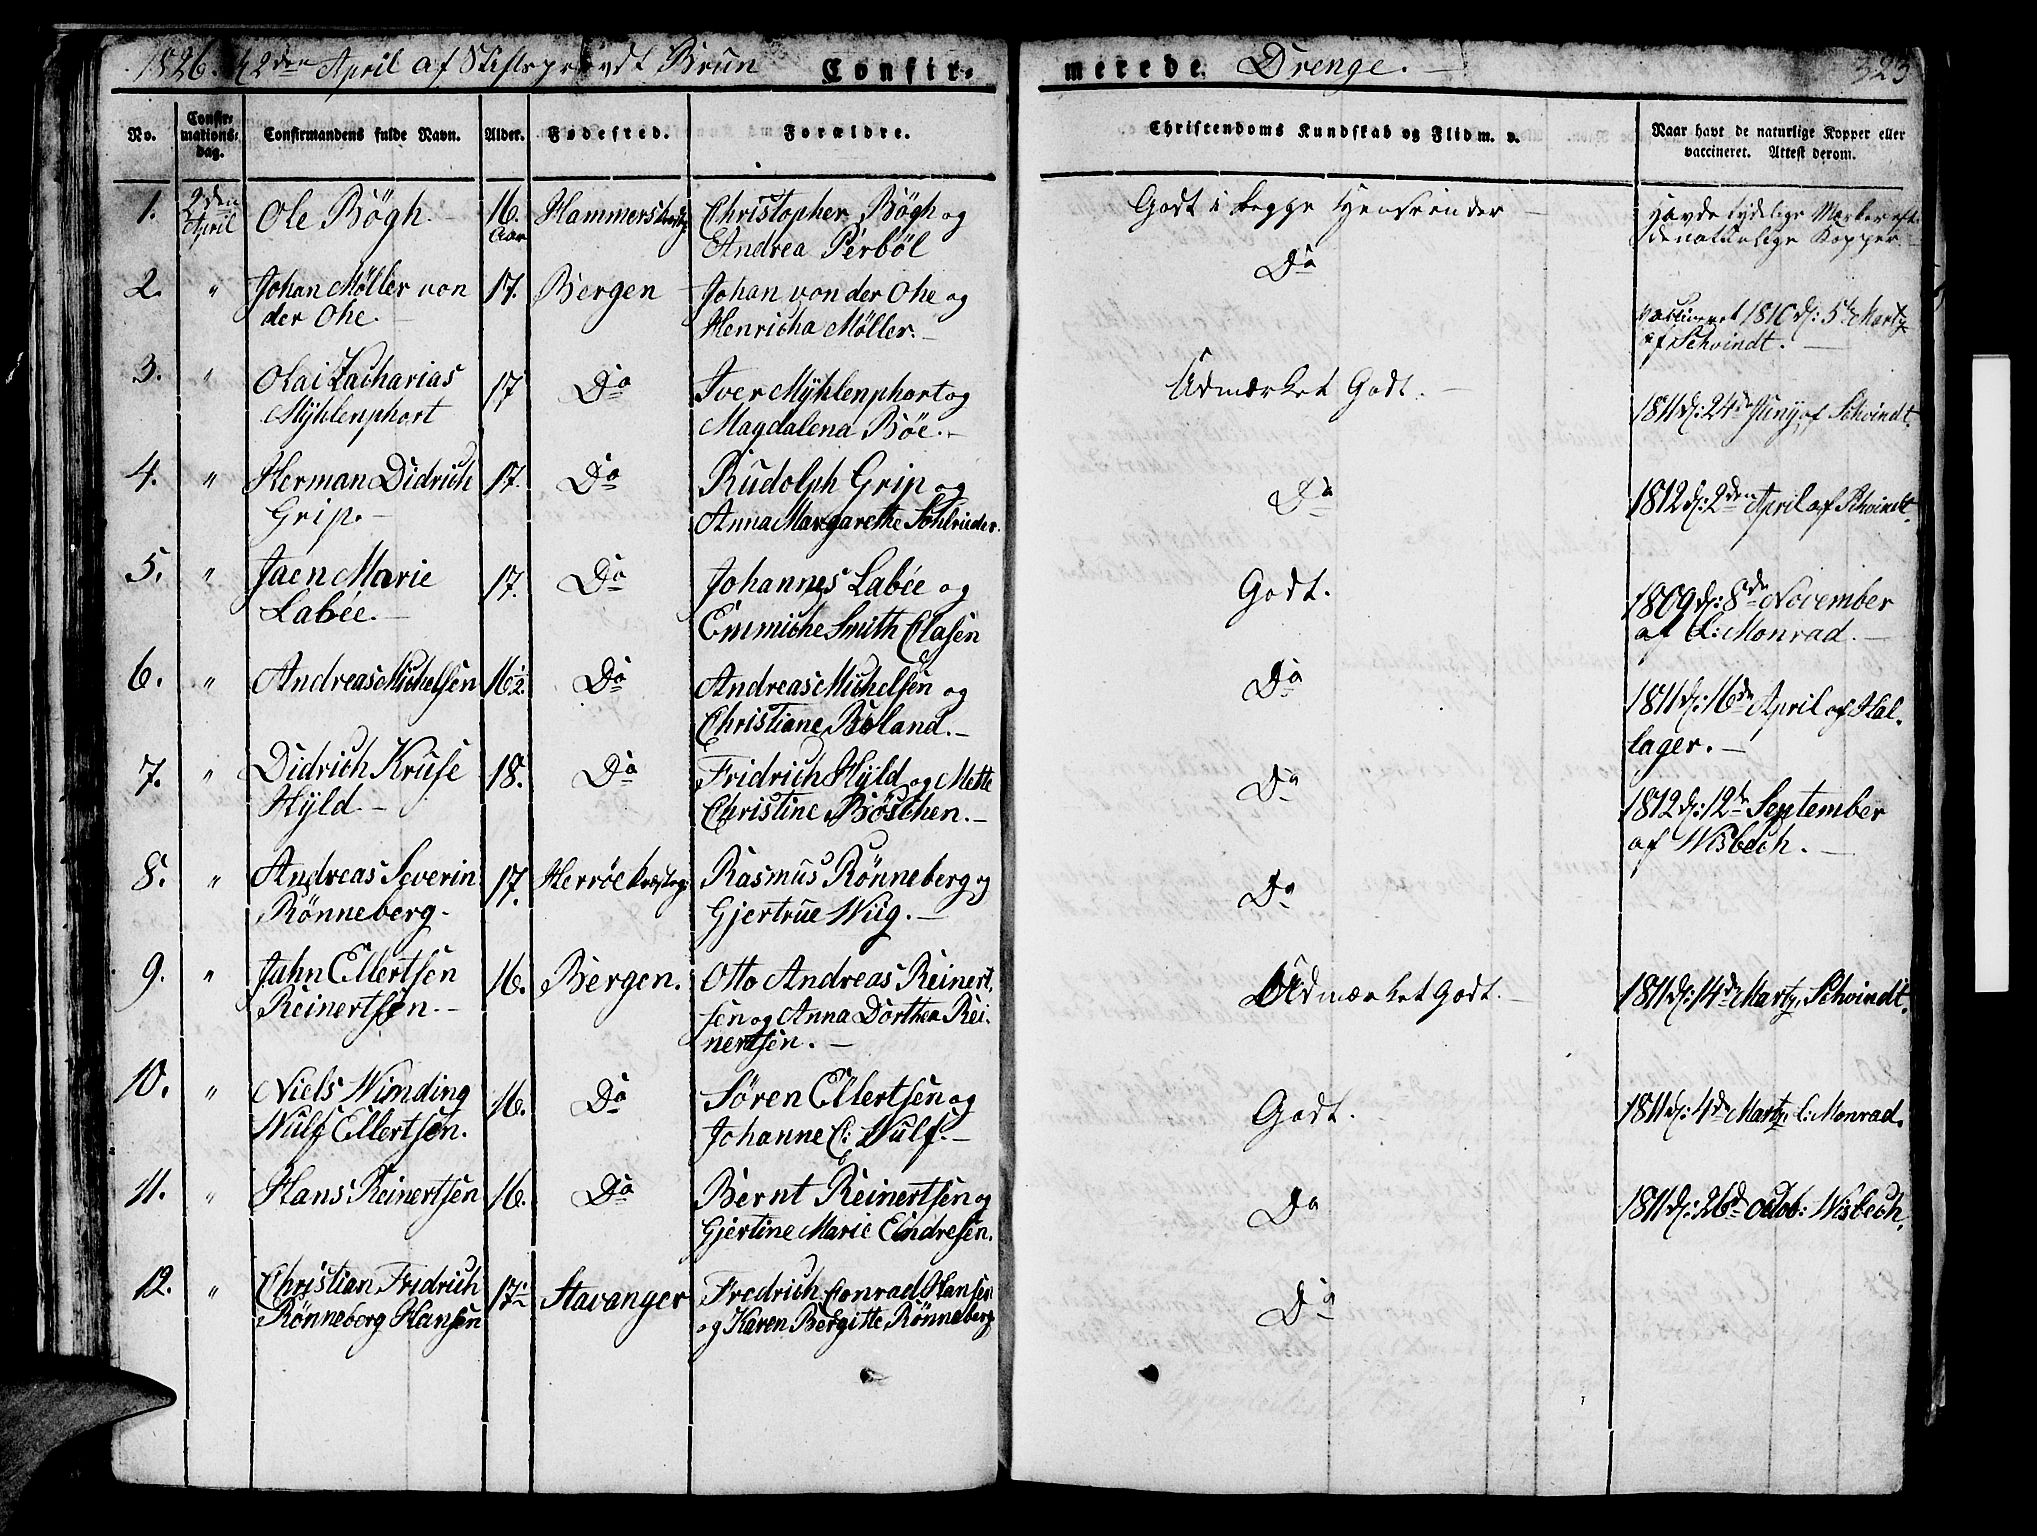 1826. d. 2den April af Stiftsprovst Brun Confir-
merede Drenge. 323
No.
Confir-
mations-
dag.
Confirmandens fulde Navn.
Alder.
Fødested.
Forældre.
Christendoms Kundskab og Flid m. v.
Naar havt de naturlige Kopper eller
vaccineret. Attest derom.
1. 2den April Ole Bögh. 16. Aar Christopher Bögh og
Andrea Perböl
Godt i begge Henseender
Havde tydelige Mærker eft.
de naturlige Kopper
2. " Johan Møller von
der Ohe. 17. Bergen Johan von der Ohe og
Henricha Møller.
Do
vaccineret 1810 d: 5te Marty
af Schvindt.
3. " Olai Zacharias
Mÿhlenphort 17 Do Iver Mÿhlenphort og
Magdalena Böe.
Udmærket Godt.
1811 d: 24de Juny af Schvindt.
4. " Herman Didrich
Grip. 17. Do Rudolph Grip og
Anna Margarethe
Do
1812 d: 2den April af Schvindt.
5. " Jaen Marie
Labée. 17. Do Johannes Labée og
Emmiche Smith Clasen
Godt.
1809 d: 8de November
af C: Monrad.
6. " Andreas Michelsen 16½ Do Andreas Michelsen og
Christiane Boland.
Do
1811 d: 16de April af Hal-
lager.
7. " Didrich Kruse
Hÿld. 18. Do Fridrich Hÿld og Mette
Christine Böschen.
Do
1812 d: 12te September
af Wisbech.
8. " Andreas Severin
Rönneberg. 17. Rasmus Rönneberg og
Gjertrue Wiig.
Do
9. " Jahn Ellertsen
Reinertsen. 16. Bergen. Otto Andreas Reinert-
sen og Anna Dorthea Rei-
nertsen.
Udmærket Godt.
1811 d: 14de Marty, Schvindt.
10. " Niels Wimding
Wulf Ellertsen. 16. Do Sören Ellertsen og
Johanne C: Wulf.
Godt.
1811 d: 4de Marty, C: Monrad.
11. " Hans Reinertsen 16. Do Bernt Reinertsen og
Gjertine Marie Eindresen.
Do
1811 d: 26de Octob: Wisbech.
12. " Christian Fridrich
Rönneberg Hansen 17½ Stavanger Fredrich Conrad Hansen
og Karen Bergitte Rönneberg
Do